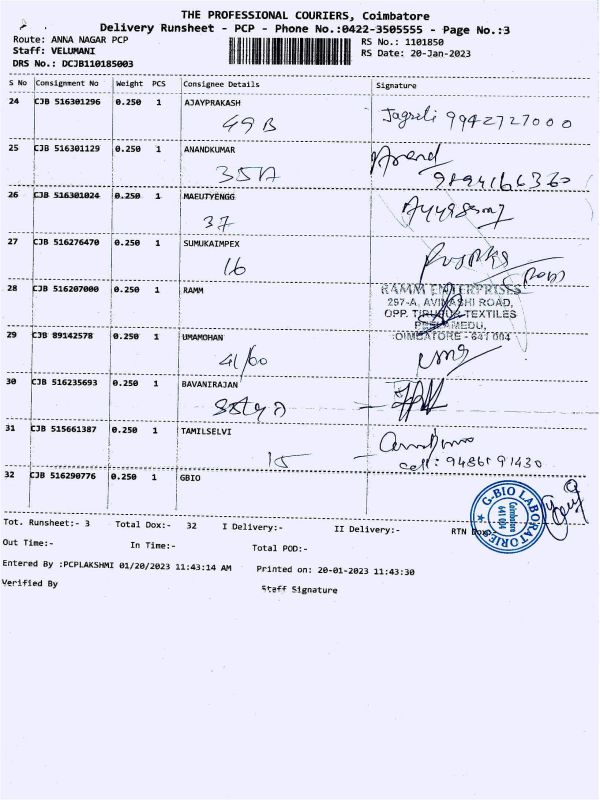 THE PROFESSIONAL COURIERS, Coimbatore
Delivery Runsheet - PCP - Phone No.:0422-3505555 - Page No.:3
Route: ANNA NAGAR PCP RS No.: 1101850
Staff: VELUMANI RS Date: 20-Jan-2023
DRS No.: DCJB110185003
S No Consignment No Weight PCS Consignee Details Signature
24 CJB 516301296 0.250 1 AJAYPRAKASH
49B 9942727000
25 CJB 516301129 0.250 1 ANANDKUMAR Anand
35A 9894166360
26 CJB 516301024 0.250 1 MAEUTYENGG
37
27 CJB 516276470 0.250 1 SUMUKAIMPEX
16
28 CJB 516207000 0.250 1 RAMM RAMM ENTERPRISES
297-A, AVINASHI ROAD,
OPP. TIRUPUR TEXTILES
PEELAMEDU,
COIMBATORE - 641 004
29 CJB 89142578 0.250 1 UMAMOHAN
41/60
30 CJB 516235693 0.250 1 BAVANIRAJAN
31 CJB 515661387 0.250 1 TAMILSELVI
15 cell: 9486191430
32 CJB 516290776 0.250 1 GBIO
G-BIO LABORATORIE
Coimbatore
641 004
Tot. Runsheet:- 3 Total Dox:- 32 I Delivery:- II Delivery:- RTN Dox:-
Out Time:- In Time:- Total POD:-
Entered By :PCPLAKSHMI 01/20/2023 11:43:14 AM Printed on: 20-01-2023 11:43:30
Verified By Staff Signature